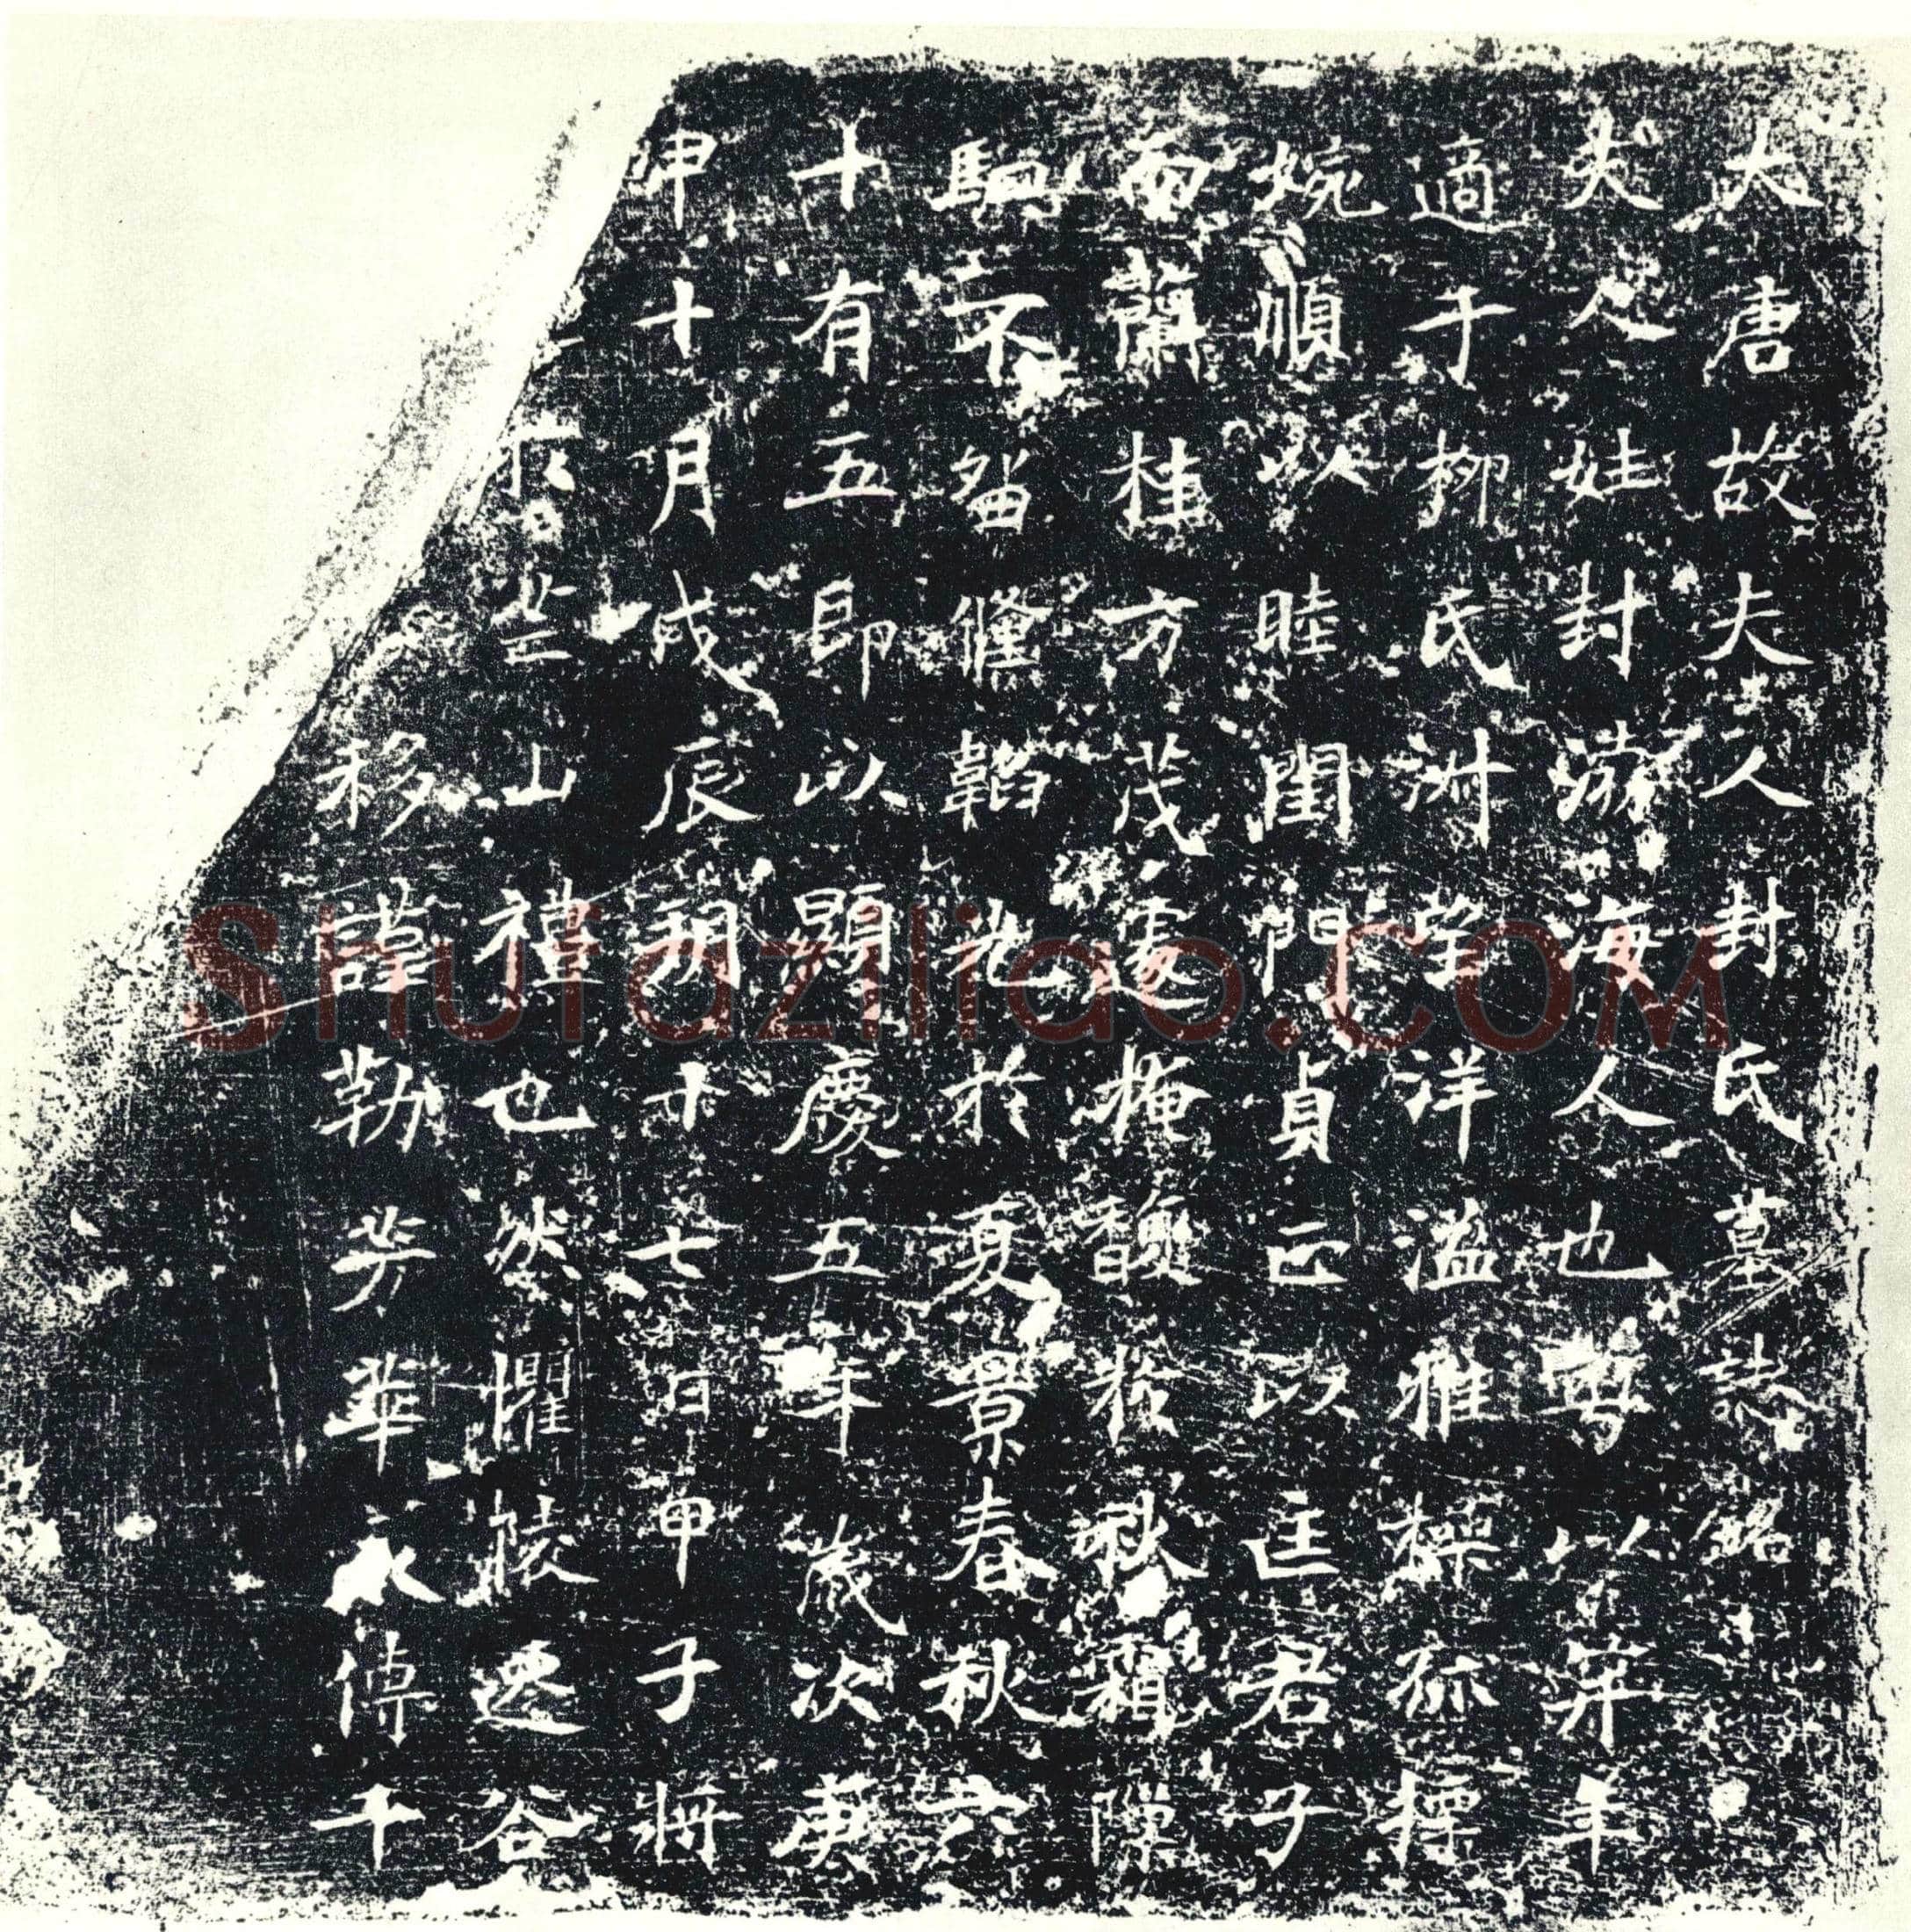 大唐故夫人封氏墓誌銘
夫人姓封渤海人也粤以笄年
適于柳氏淑望洋溢雅操孤標
婉順以睦閨門貞正以匡君子
而蘭桂方茂遽掩馥於秋霜隟
駟不留儵韜光於夏景春秋六
十有五即以顯慶五年歲次庚
申十月戊辰朔廿七日甲子將
芒山禮也然懼陵遷谷
移謹勒芳華永傳千
Shufaziliao.COM